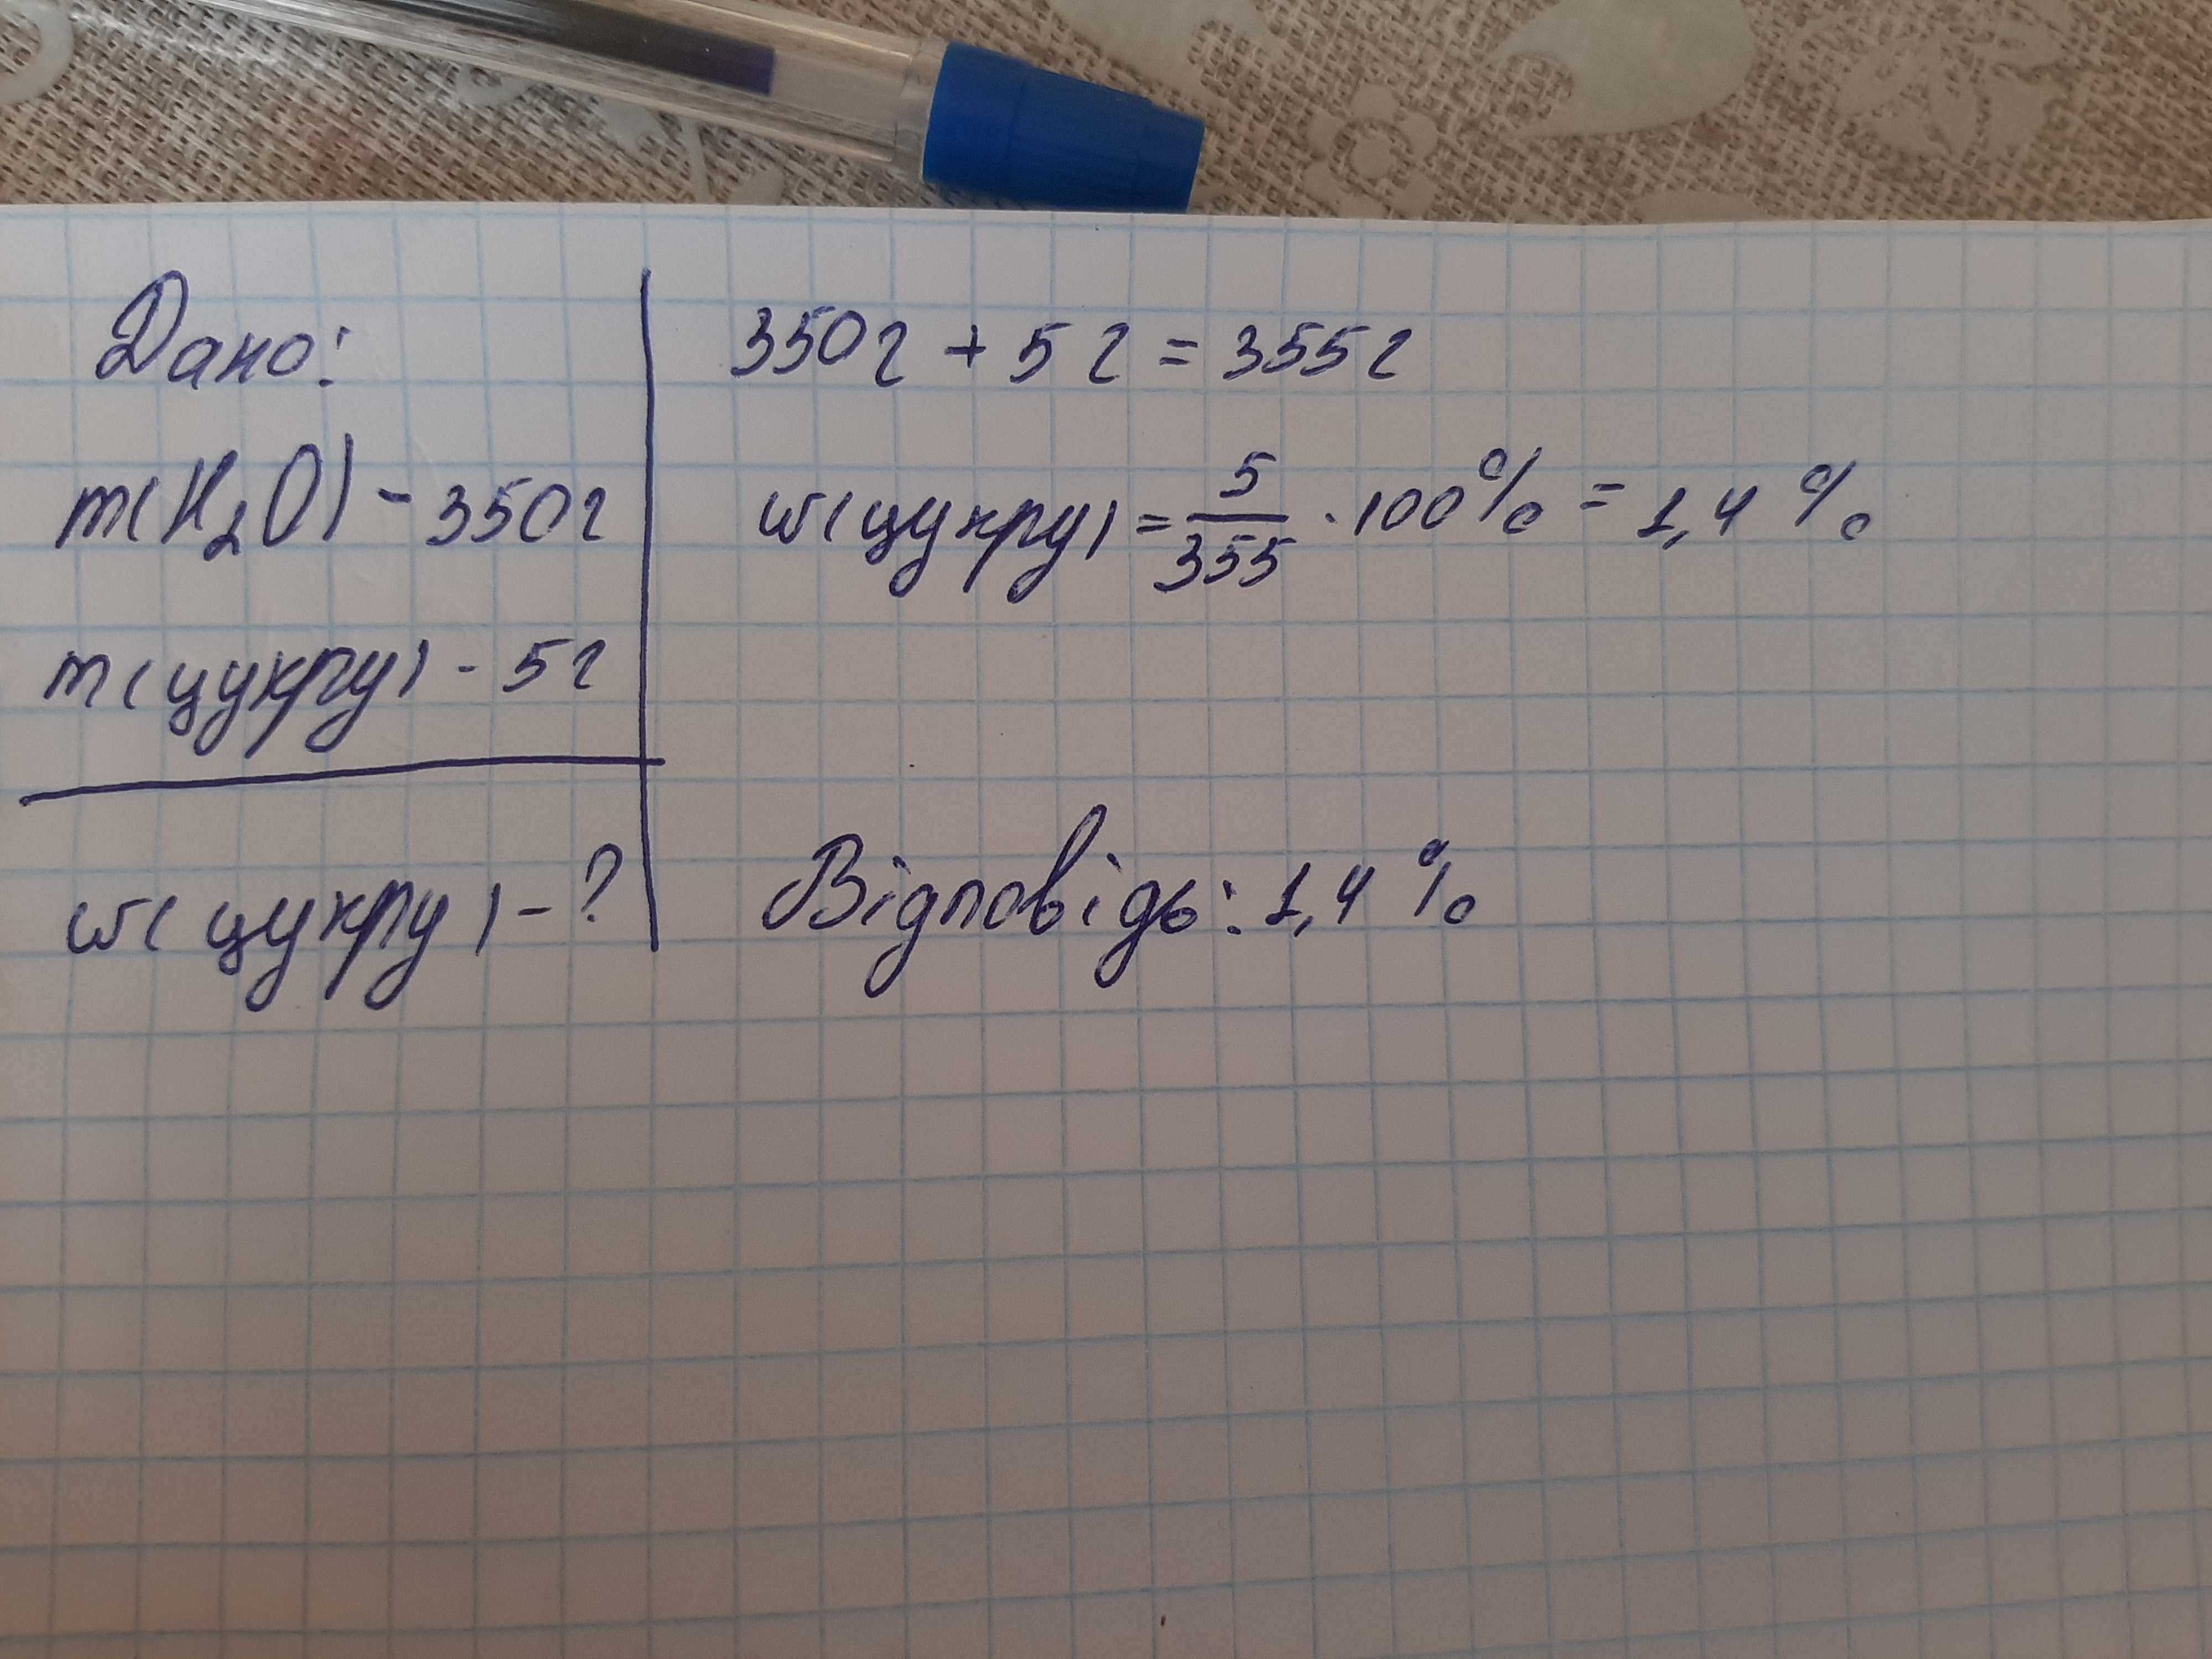 Дано:
m(H₂O) - 350г
m(цукру) - 5г
w(цукру) - ?
350г + 5г = 355г
w(цукру) = 5/355 · 100% = 1,4 %
Відповідь: 1,4 %